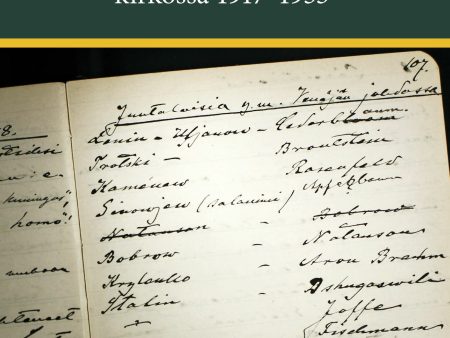 kirkossa 1917–1933
107.
Juutalaisia y.m. Venäjän johdossa
Lenin - Uljanow - Cederblaum.
Trotski - Bronstein
Kaménew Rosenfeld
Sinowjew Apfelbaum
Natanson - Bobrow
Bobrow - Natanson
Krylenko - Aron Brahm
Stalin - Dshugaswili
" Joffe
Fischmann
8.
kuningas"
homo"!